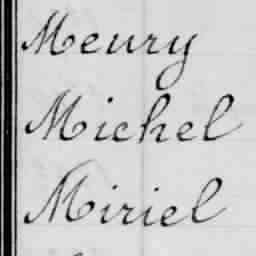 Meury
Michel
Miriel